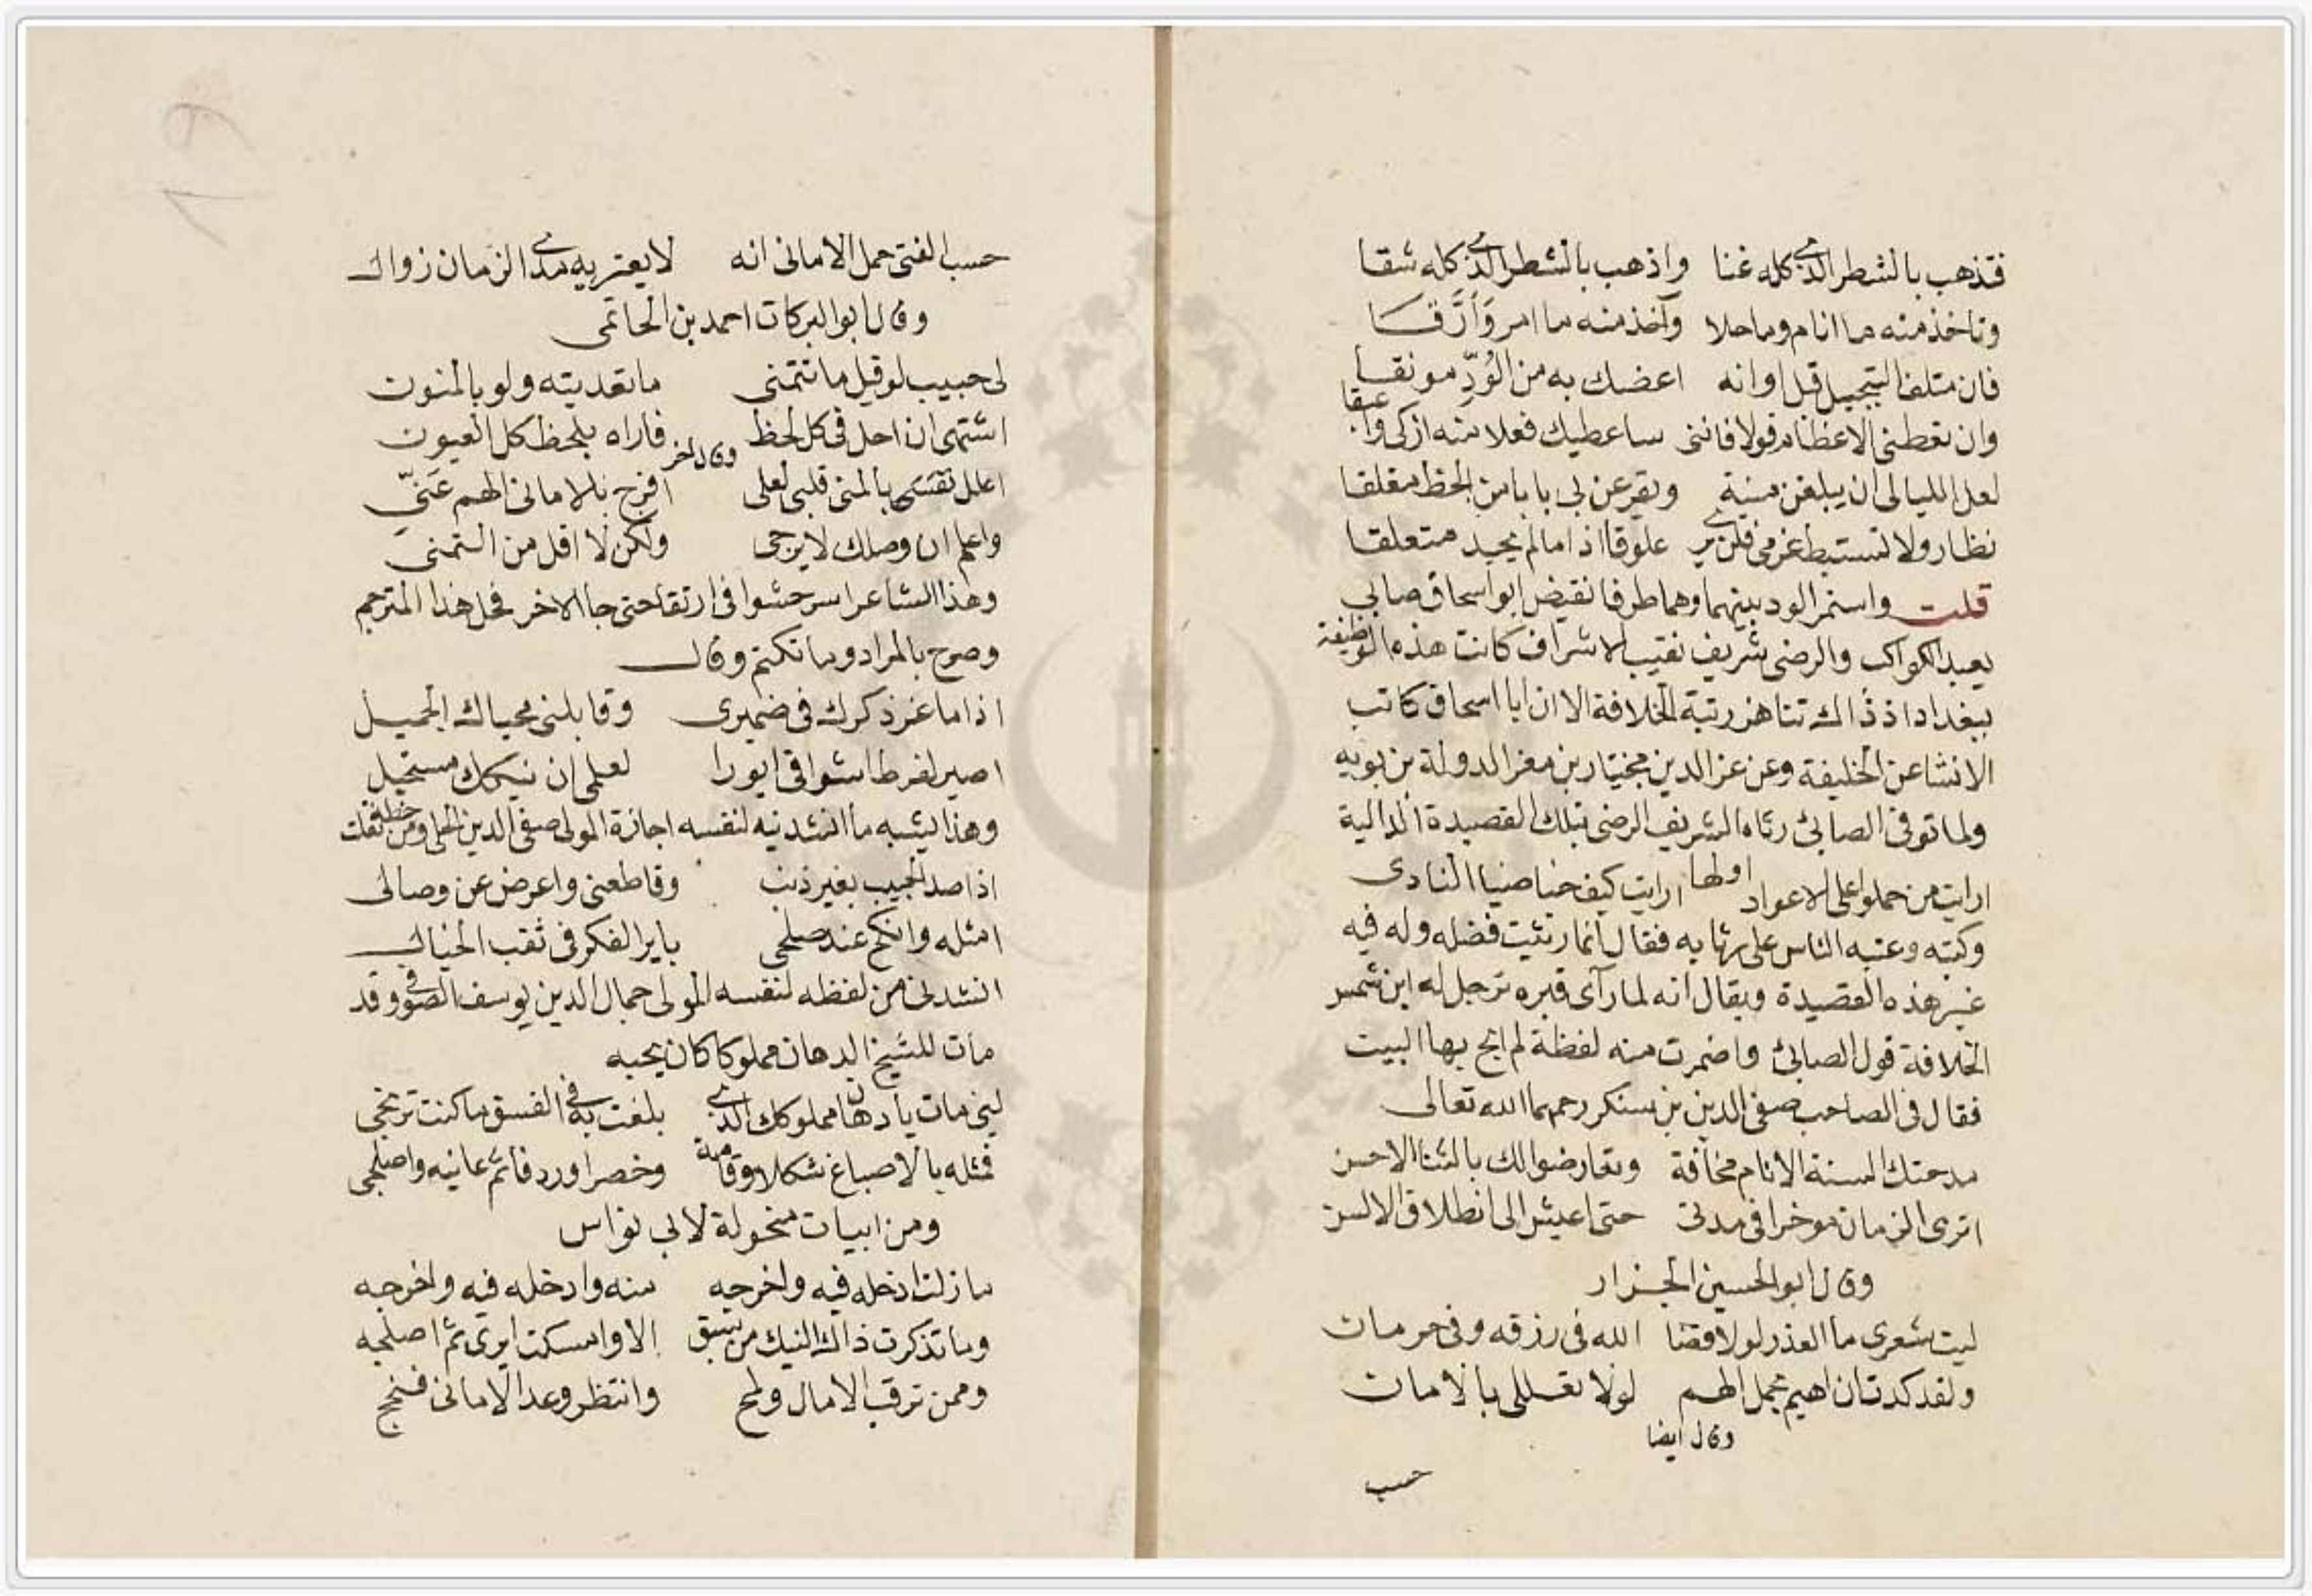 فتذهب بالشطر الذي كله غنا واذهب بالشطر الذي كله شقا
وتاخذ منه ما انام وما حلا وآخذ منه ما امر وَأَرَّقَا
فان متلفا التبجيل قبل اوانه اعضك به من الوُدِّ مونقا
وان تعطني الاعظام قولا فانني ساعطيك فعلا منه ازكى واعبقا
لعل الليالي ان يبلغن منية ويقرعن لي بابا من الحظ مغلقا
نظار ولا تستبط عزمي فلن يرى علوقا اذا ما لم يجد متعلقا
قلت واستمر الود بينهما وهما طرفا نقيض ابو اسحاق صابي
يعبد الكواكب والرضى شريف نقيب الاشراف كانت هذه الوظيفة
ببغداد اذ ذاك تناهز رتبة الخلافة الا ان ابا اسحاق كاتب
الانشا عن الخليفة وعن عز الدين بختيار بن معز الدولة بن بويه
ولما توفى الصابئ رثاه الشريف الرضى بتلك القصيدة الدالية
اولها
ارايت من حملوا على الاعواد ارايت كيف خبا ضيا النادى
وكبته وعتبه الناس على رثايه فقال انما رثيت فضله وله فيه
غير هذه القصيدة ويقال انه لما رآى قبره ترجل له ابن شمس
الخلافة قول الصابئ واضمرت منه لفظة لم ابح بها البيت
فقال فى الصاحب صفى الدين بن سكر رحمهما الله تعالى
مدحتك السنة الانام مخافة وتقارضوا لك بالثنا الاحسن
اترى الزمان موخرا فى مدتى حتى اعيش الى انطلاق الالسن
وقال ابو الحسين الجزار
ليت شعرى ما العذر لولا قضا الله فى رزقه وفى حرمان
ولقد كدت ان اهيم بحمل الهم لولا تعللى بالامان
وقال ايضا
حسب
حسب الفتى حمل الامانى انه لا يعتريه مدى الزمان زوال
وقال ابو البركات احمد بن الحاتمى
لى حبيب لو قيل ما تتمنى ما تعديته ولو بالمنون
اشتهى ان احل فى كل لحظ فاراه بلحظ كل العيون
وقال اخر
اعلل بالمنى قلبى لعلى افرج بالامانى الهم عَنِّي
واعلم ان وصلك لا يرجى ولكن لا اقل من التمنى
وهذا الشاعر اسر حشوا فى ارتقا حتى جا الاخر فحل هذا المترجم
وصرح بالمراد وما تكتم وقال
اذا ما عز ذكرك فى ضميرى وقابلنى محياك الجميل
اصير لفرط اشواقى ايورا لعلمى ان نيكك مستحيل
وهذا يشبه ما انشدنيه لنفسه اجازة المولى صفى الدين الحلى ومن خطه نقلت
اذا صد الحبيب بغير ذنب وقاطعنى واعرض عن وصالى
امثله وانكح عند صلحى باير الفكر فى ثقب الخيال
انشدنى من لفظه لنفسه المولى جمال الدين يوسف الصوفى وقد
مات للشيخ الدهان مملوكا كان يحبه
لين مات يا دهان مملوكك الذى بلغت به فى الفسق ما كنت ترتجى
فمثله بالاصباغ شكلا وقامة وخصرا وردفا ثم عانيه واصلجى
ومن ابيات منحولة لابى نواس
ما زلت ادخله فيه واخرجه منه وادخله فيه واخرجه
وما تذكرت ذاك النيك من شبق الا وامسكت ايرى ثم اصلجه
وممن ترقب الامال ولمح وانتظر وعد الامانى فنجح